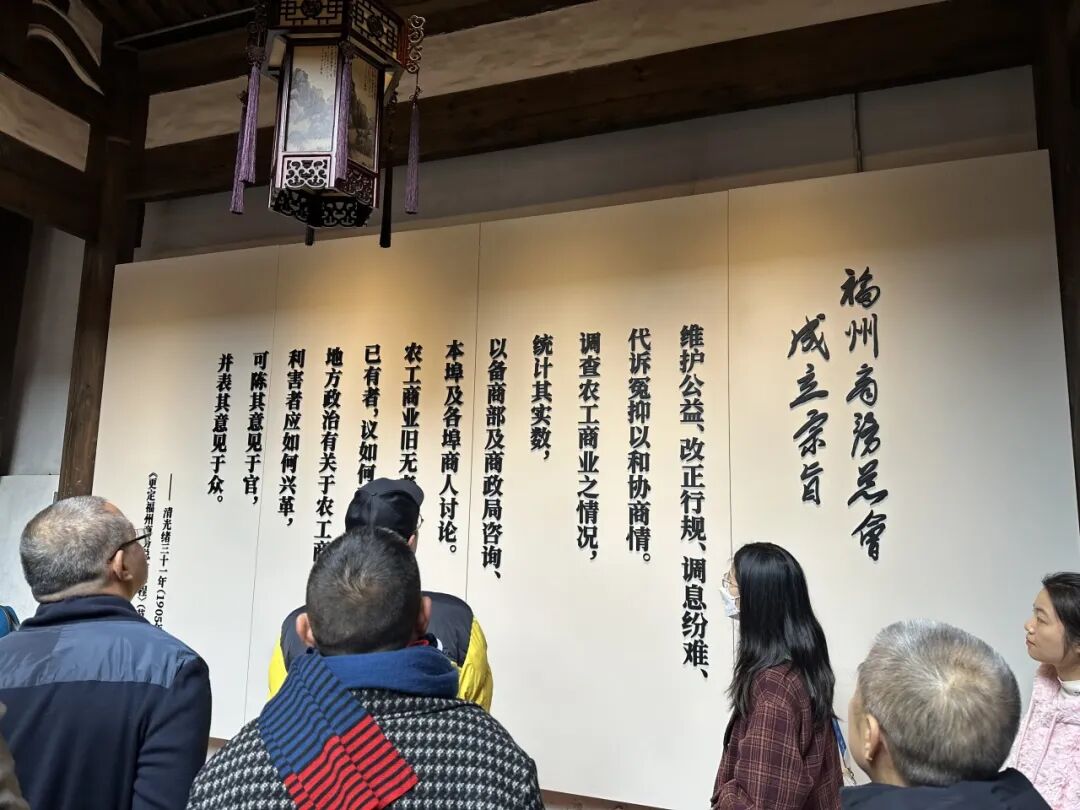 福州商务总會
成立宗旨
维护公益、改正行规、调息纷难、
代诉冤抑以和协商情。
调查农工商业之情况，
统计其实数，
以备商部及商政局咨询、
本埠及各埠商人讨论。
农工商业旧无
已有者，议如何
地方政治有关于农工商
利害者应如何兴革，
可陈其意见于官，
并表其意见于众。
—— 清光绪三十一年（1905
《更定福州商
程》（